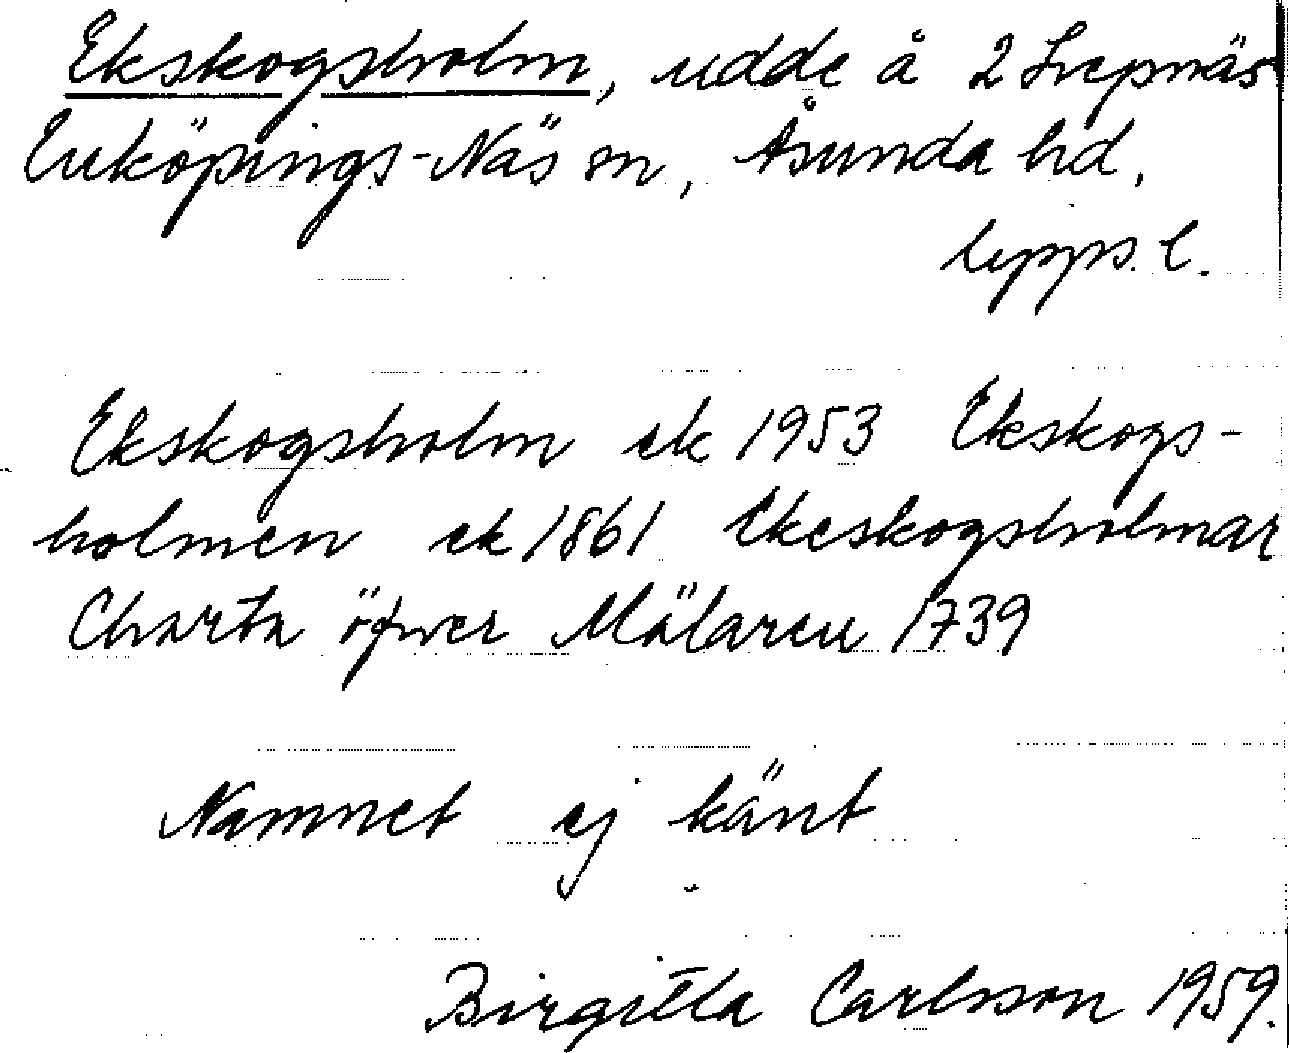 Ekskogsholm, udde å 2 Svepnäs
Enköpings-Näs sn, Åsunda hd,
Upps. l.
Ekskogsholm ek 1953 Ekskogs-
holmen ek 1861 Ekeskogsholmar
Charta öfwer Mälaren 1739
Namnet ej känt
Birgitta Carlsson 1959.